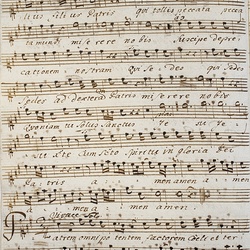 lius filius Patris qui tollis peccata pecca
ta mundi miserere nobis Suscipe depre:
cationem nostram Qui sedes qui sedes
ad dexteram Patris miserere nobis
Quoniam tu solus sanctus te su
Cum Sto Spiritu in gloria Dei
Patris a men amen a men
a men a amen
Vivace
Patrem omnipotentem factorem Coeli et ter